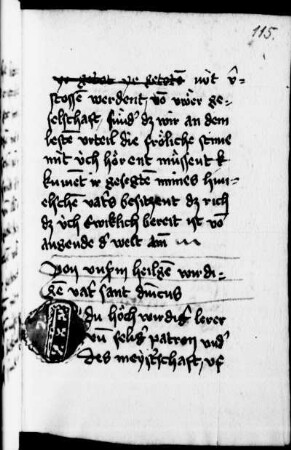 115.
nit v̄-
stossen werdent vō uwer ge-
selschaft sund dz wir an dem
leste urteil die fröliche stime
mit uch hörent müssent k
kument ir gesegten mines him-
elschen vatters besitzent dz rich
dz uch ewiklich bereit ist vō
angende d' welt am̄
Von unserm heilgen wirdi-
ge vatter sant dm̄cus
O du hoch wirdiger lerer
un̄ selig' patron und'
des meysterschaft uf